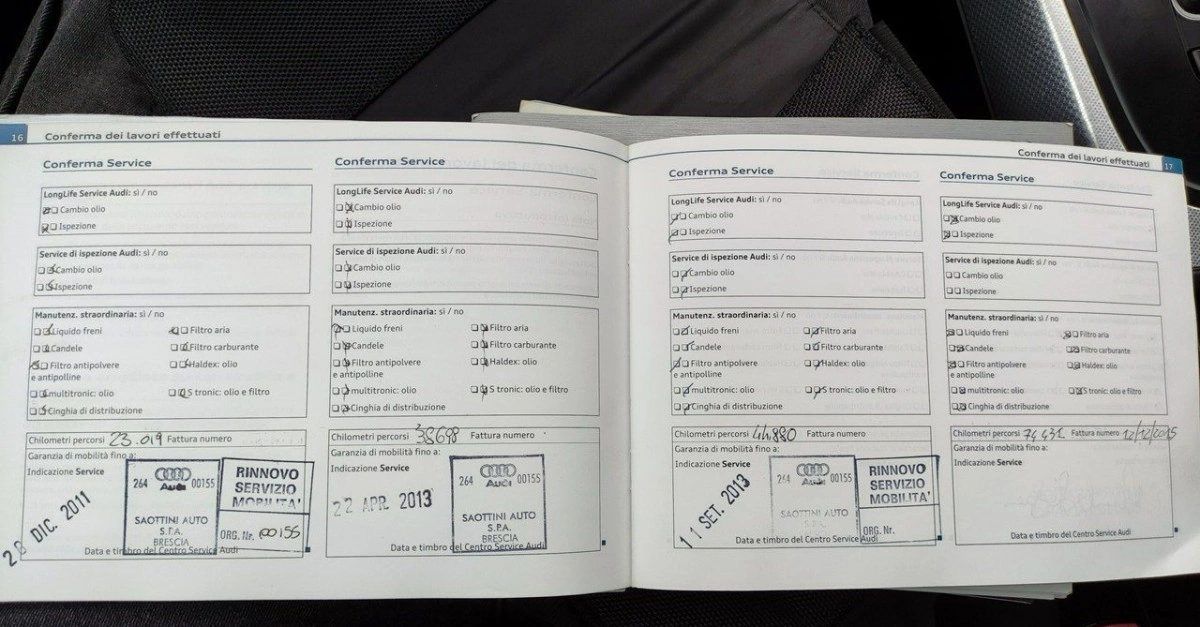 16
Conferma dei lavori effettuati
Conferma Service
LongLife Service Audi: sì / no
Cambio olio
Ispezione
Service di ispezione Audi: sì / no
Cambio olio
Ispezione
Manutenz. straordinaria: sì / no
Liquido freni Filtro aria
Candele Filtro carburante
Filtro antipolvere Haldex: olio
e antipolline
multitronic: olio S tronic: olio e filtro
Cinghia di distribuzione
Chilometri percorsi 23.019 Fattura numero
Garanzia di mobilità fino a:
Indicazione Service
DIC. 2011
264 Audi 00155
SAOTTINI AUTO
S.P.A.
BRESCIA
RINNOVO
SERVIZIO
MOBILITA'
ORG. Nr. 00155
Data e timbro del Centro Service Audi
Conferma Service
LongLife Service Audi: sì / no
Cambio olio
Ispezione
Service di ispezione Audi: sì / no
Cambio olio
Ispezione
Manutenz. straordinaria: sì / no
Liquido freni Filtro aria
Candele Filtro carburante
Filtro antipolvere Haldex: olio
e antipolline
multitronic: olio S tronic: olio e filtro
Cinghia di distribuzione
Chilometri percorsi 38698 Fattura numero
Garanzia di mobilità fino a:
Indicazione Service
22 APR. 2013
264 Audi 00155
SAOTTINI AUTO
S.P.A.
BRESCIA
Data e timbro del Centro Service Audi
Conferma dei lavori effettuati
17
Conferma Service
LongLife Service Audi: sì / no
Cambio olio
Ispezione
Service di ispezione Audi: sì / no
Cambio olio
Ispezione
Manutenz. straordinaria: sì / no
Liquido freni Filtro aria
Candele Filtro carburante
Filtro antipolvere Haldex: olio
e antipolline
multitronic: olio S tronic: olio e filtro
Cinghia di distribuzione
Chilometri percorsi 44.880 Fattura numero
Garanzia di mobilità fino a:
Indicazione Service
11 SET. 2013
264 Audi 00155
SAOTTINI AUTO
S.P.A.
RINNOVO
SERVIZIO
MOBILITA'
ORG. Nr.
Data e timbro del Centro Service Audi
Conferma Service
LongLife Service Audi: sì / no
Cambio olio
Ispezione
Service di ispezione Audi: sì / no
Cambio olio
Ispezione
Manutenz. straordinaria: sì / no
Liquido freni Filtro aria
Candele Filtro carburante
Filtro antipolvere Haldex: olio
e antipolline
multitronic: olio S tronic: olio e filtro
Cinghia di distribuzione
Chilometri percorsi 74431 Fattura numero 12/12/2015
Garanzia di mobilità fino a:
Indicazione Service
Data e timbro del Centro Service Audi